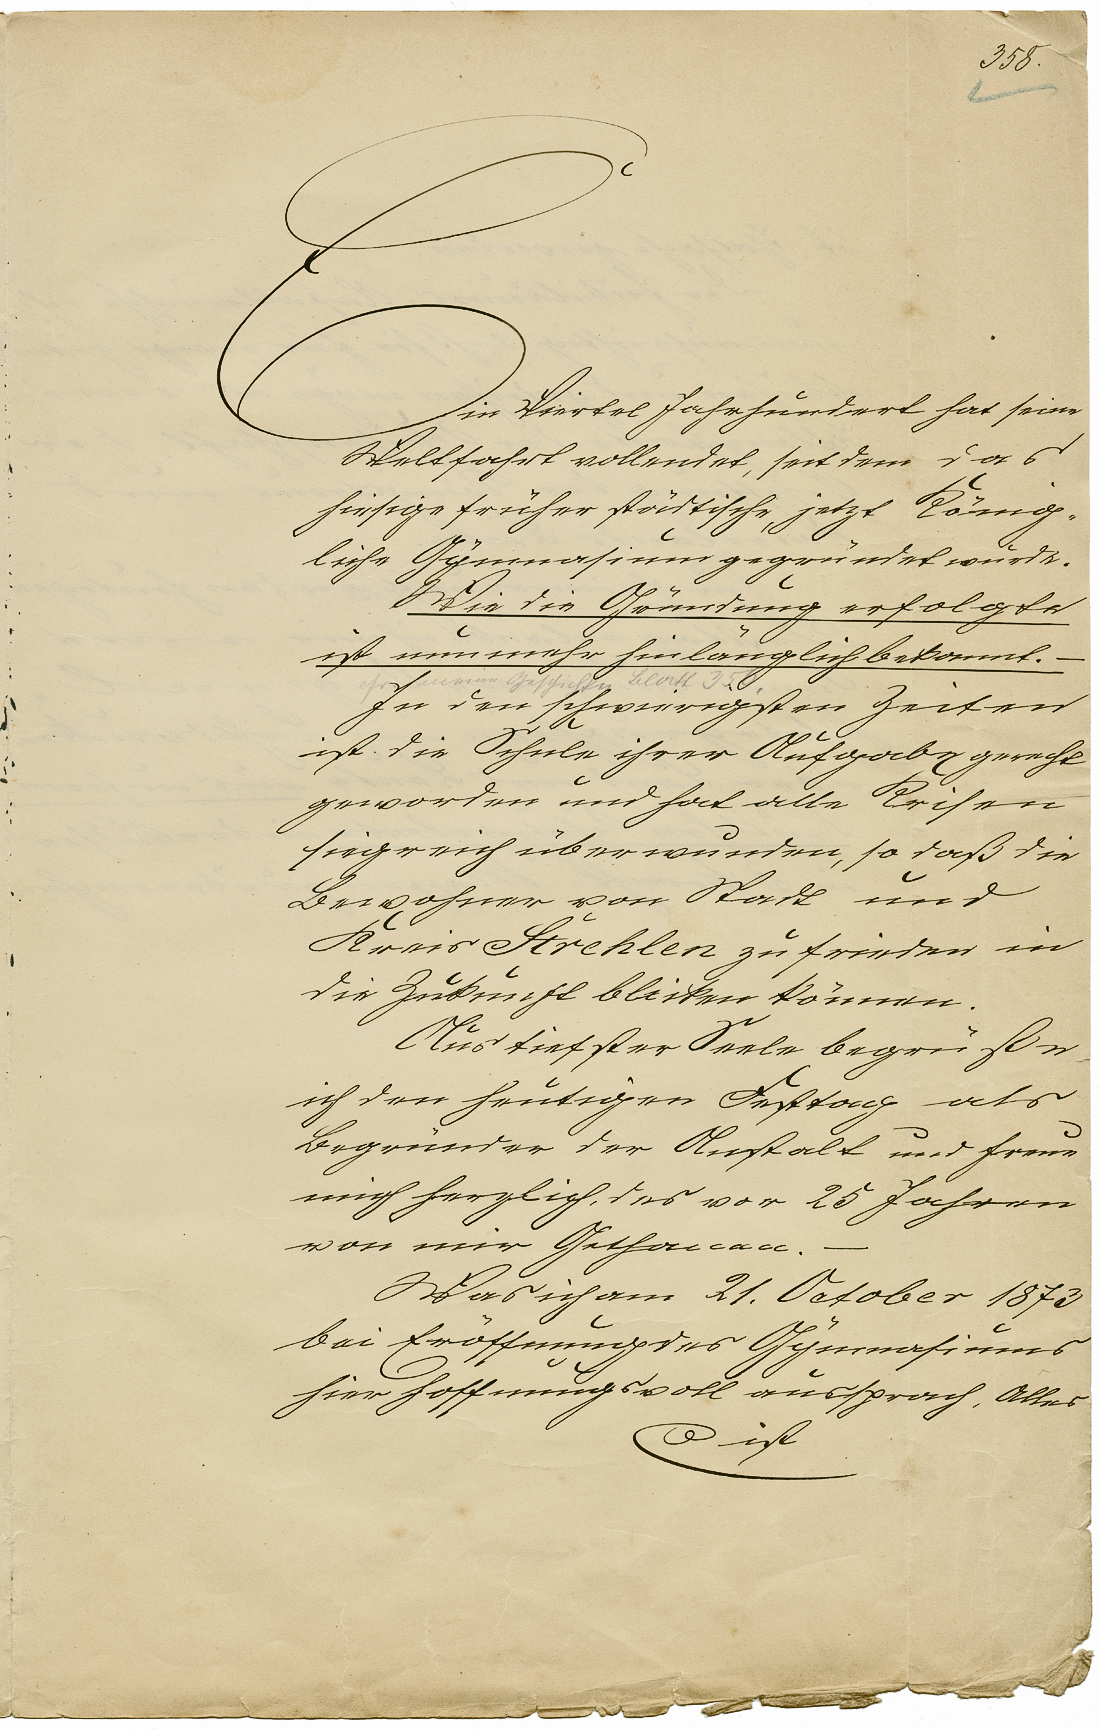 358.
Ein Viertel Jahrhundert hat seine
Weltfahrt vollendet, seitdem das
hiesige früher städtische, jetzt König-
liche Gymnasium gegründet wurde.
Wie die Gründung erfolgte
ist nunmehr hinlänglich bekannt. —
meine Geschichte Blatt 35
In den schwierigsten Zeiten
ist die Schule ihrer Aufgabe gerecht
geworden und hat alle Krisen
siegreich überwunden, so daß die
Bewohner von Stadt und
Kreis Strehlen zufrieden in
die Zukunft blicken können.
Aus tiefster Seele begrüße
ich den heutigen Festtag als
Begründer der Anstalt und freue
mich herzlich, des vor 25 Jahren
von mir Gethanen. —
Was ich am 21. October 1873
bei Eröffnung des Gymnasiums
hier hoffnungsvoll aussprach, Alles
ist